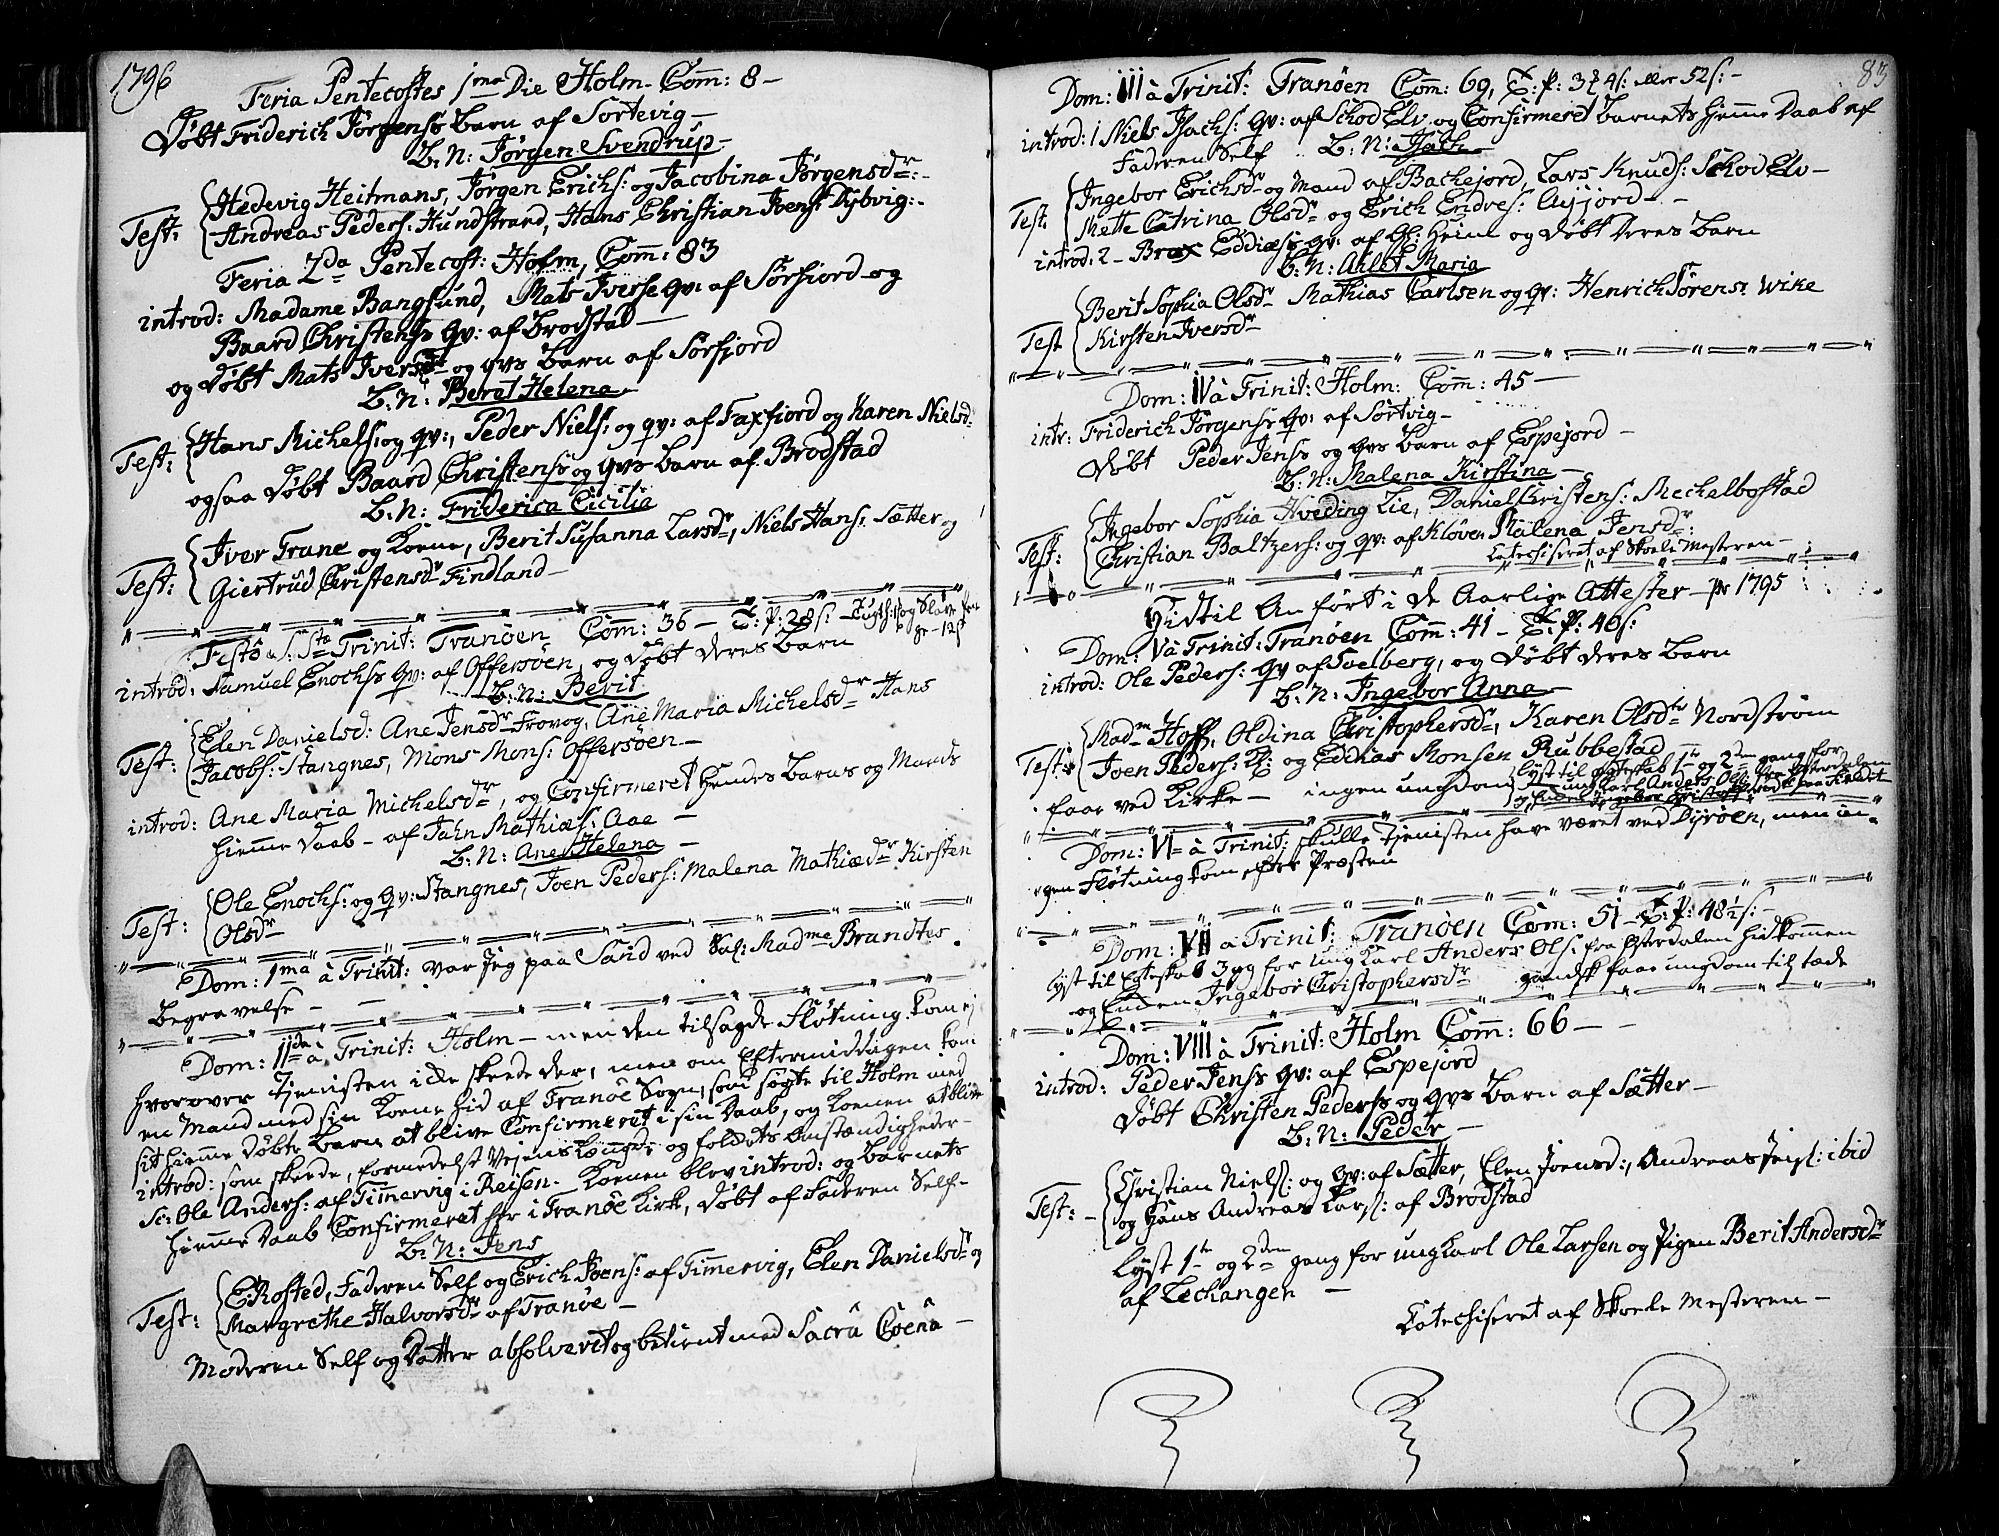 1796
Feria Pentecostes 1ma Die Holm. Com̄: 8 —
Døbt Friderich Jørgens Barn af Sortevig —
B: N: Jørgen Svendrup
Hedevig Heitmans, Jørgen Erichs: og Jacobina Jørgensdr: -
Test: Andreas Peders: Hundstrand, Hans Christian Ivens: Dybvig: -
Feria 2da Pentecost: Holm, Com̄: 83
introd: Madame Bangsund, Mats Iverss qv: af Sørfiord og
Baard Christenss qv: af Brodstad —
og Døbt Mats Iverss og qvs Barn af Sørfjord
B: N: Beret Helena
Test: Hans Michels: og qv:, Peder Niels: og qv: af Faxfiord og Karen Nielsd:
ogsaa Døbt Baard Christenss og qvs Barn af Brodstad
B: N: Friderica Cicilia
Iver Trane og Kone, Berit Susanna Larsdr, Niels Hans: Sætter og
Test: Giertrud Christensdr Findland —
Festô S: Stæ Trinit: Tranöen Com̄: 36 — T: P: 28 s: —
introd: Samuel Enochss qv: af Offersöen, og Döbt deres Barn
B: N: Berit
Elen Danielsd: Ane Jensdr Frovog, Ane Maria Michelsdr Hans
Test: Jacobs: Stangnes, Mons Mons: Offersöen —
introd: Ane Maria Michelsdr, og Confirmeret hendes Barns og Mands
hiemme Daab — af Jahn Mathias: Aae —
B: N: Ane Helena —
Ole Enochs: og qv: Stangnes, Joen Peders: Malena Mathiædr Kirsten
Test: Olsdr —
Dom: 1ma à Trinit: var Jeg paa Sand ved Sal: Madme Brandtes
Begravelse — —
Dom: IIda à Trinit: Holm — men den tilsagde Fløtning kom ej
hvorover Tjenisten icke skeede der, men om Eftermiddagen kom
en Mand med sin Kone hid af Tranöe Sogn, som søgte til Holm med
sit hiemme døbte Barn at blive Confirmeret i sin Daab, og Konen at blive
introd: som skeede, formedelst Vejens Længde og Omstændigheder —
Sc: Ole Anders: af Timmervig i Reisen. Konen blev introd: og Barnets
hiemme Daab Confirmeret her i Tranöe Kirk, døbt af Faderen Self —
B: N: Jens
E Rosted, Faderen Self og Erich Joens: af Timervig, Elen Danielsdr og
Test: Margrethe Halvorsdr af Tranöe —
Moderen Self og Datter absolveret og betient med Sacrâ Coenâ —
83
Dom: III à Trinit: Tranöen Com̄: 69, T: P: 3 ƶ 4 s: eller 52 s: —
introd: 1 Niels Isachs: qv: af Skod Elv og Confirmeret Barnets hiemme Daab af
Faderen Self .. B: N: Isach
Ingebor Erichsdr og Mand af Backejord, Lars Knuds: Skod Elv —
Test: Mette Catrina Olsdr og Erich Endres: —
introd: 2 — Eddiæss qv: af og Døbt Deres Barn
B: N: Ahlet Maria
Berit Sophia Olsdr Mathias Carlsen og qv: Henrich Sørens: Wike
Test Kirsten Iversdr
Dom: IV à Trinit: Holm: Com̄: 45 —
intr: Friderich Jørgenss qv: af Sørtvig —
Døbt Peder Jenss og qvs Barn af Espejord —
B: N: Malena Kirstina —
Ingebor Sophia Hveding Lie, Daniel Christens: Mechelbostad
Test: Christian Baltzers: og qv: af Kløven Malena Jensdr:
Catechiseret af Skole Mesteren —
Hidtil Anført i de Aarlige Attester — pr 1795
Dom: V à Trinit: Tranöen Com̄: 41 — T: P: 40 s:
introd: Ole Peders: qv af Tvelberg, og Døbt deres Barn
B: N: Ingebor Anna
Madm Hoff, Oldina Christophersdr, Karen Olsdtr Nordstrøm
Test: Joen Peders: og Edenas Monsen Rubbestad
faae ved Kirke — ingen ungdom
Lyst til Egteskab 1te og 2den gang for
ung Karl Anders Ols: fra Østerdalen
og Enken Ingebor
Dom: VI à Trinit: skulle Tjenisten have været ved Dyröen, men in-
gen Fløtning kom, efter Præsten
Dom: VII à Trinit: Tranöen Com: 51 T: P: 48½ s: —
lyst til Egteskab 3 gg for ung Karl Anders Ols: fra Østerdalen hidkomen
og Enken Ingebor Christophersdr gandsk faae ungdom til stæde
Dom: VIII à Trinit: Holm Com̄: 66 — —
introd: Peder Jenss qv: af Espejord
Døbt Christen Pederss og qvs Barn af Sætter —
B: N: Peder —
Christian Niels: og qv: af Sætter, Elen Joensd:, Andreas Jens: ibid
Test: — og Hans Andreas Lars: af Brodstad
Lyst 1te og 2den gang for ung Karl Ole Larsen og Pigen Berit Andersdr
af Lechangen —
Catechiseret af Skole Mesteren —